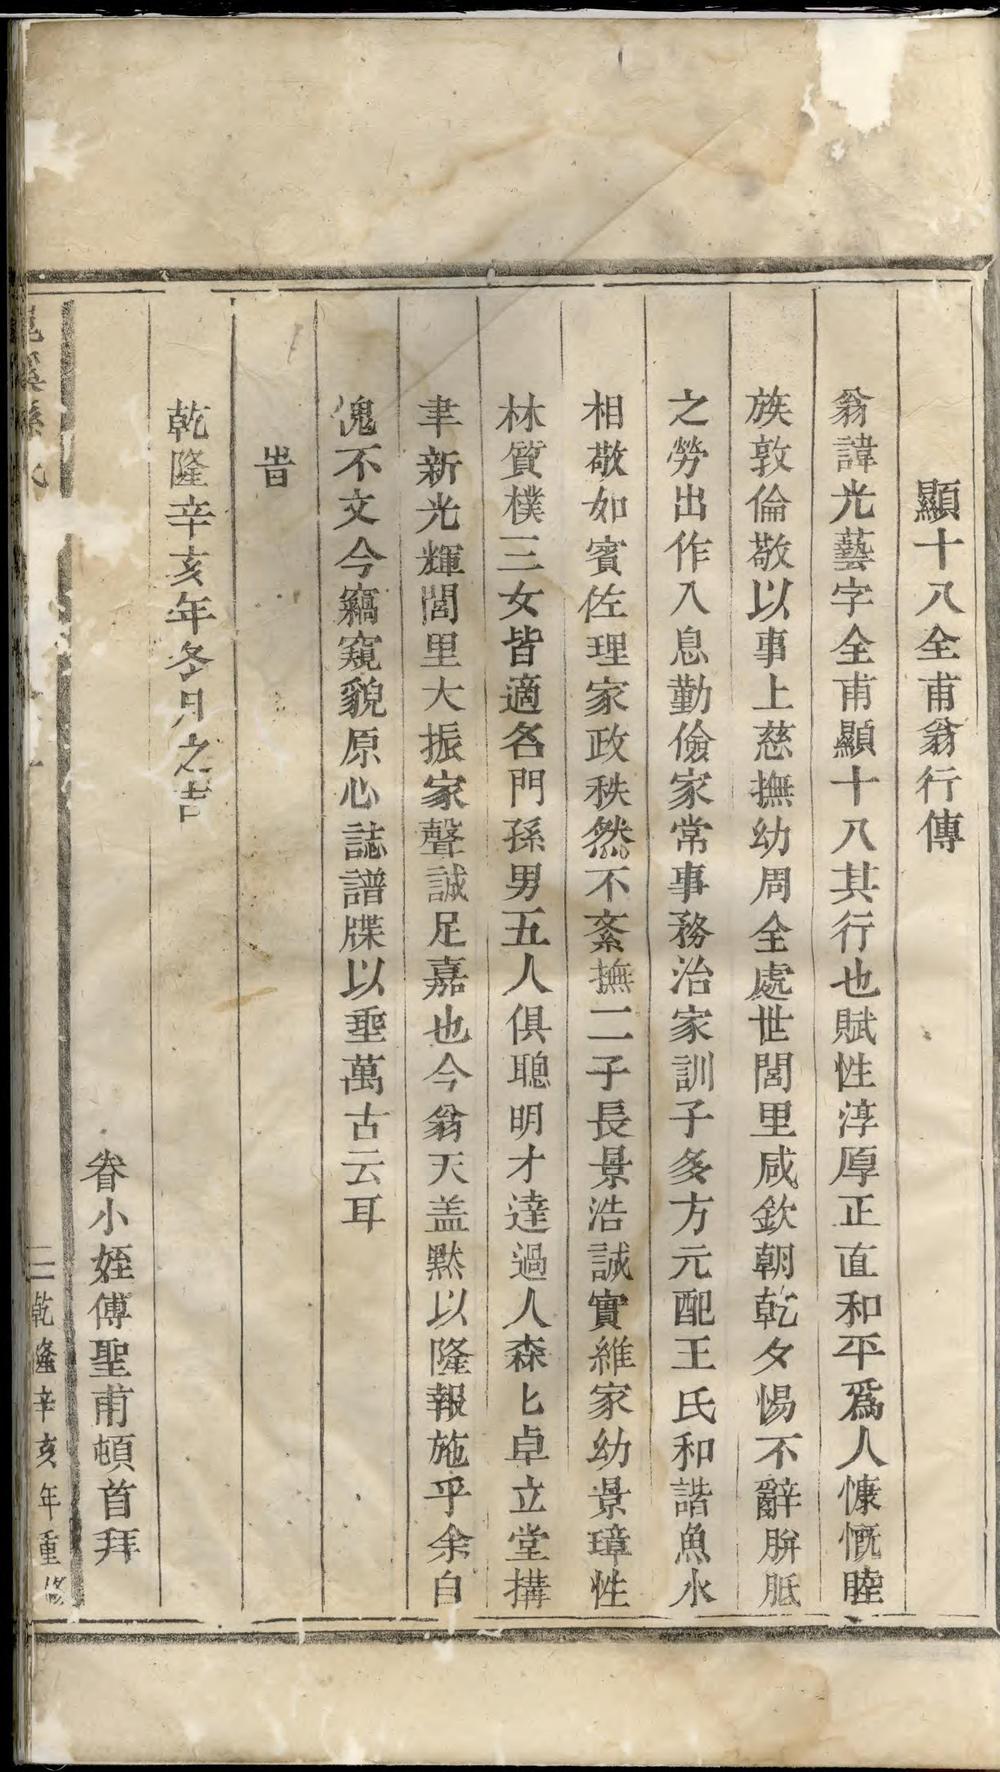 顯十八全甫翁行傳
翁諱光藝字全甫顯十八其行也賦性淳厚正直和平爲人慷慨睦
族敦倫敬以事上慈撫幼周全處世閭里咸欽朝乾夕惕不辭胼胝
之勞出作入息勤儉家常事務治家訓子多方元配王氏和諧魚水
相敬如賓佐理家政秩然不紊撫二子長景浩誠實維家幼景璋性
林質樸三女皆適名門孫男五人俱聰明才達過人森匕卓立堂搆
聿新光輝閭里大振家聲誠足嘉也今翁天盖默以隆報施乎余自
愧不文今竊窺貌原心誌譜牒以垂萬古云耳
旹
乾隆辛亥年冬月之吉
眷小姪傅聖甫頓首拜
二 乾隆辛亥年重修